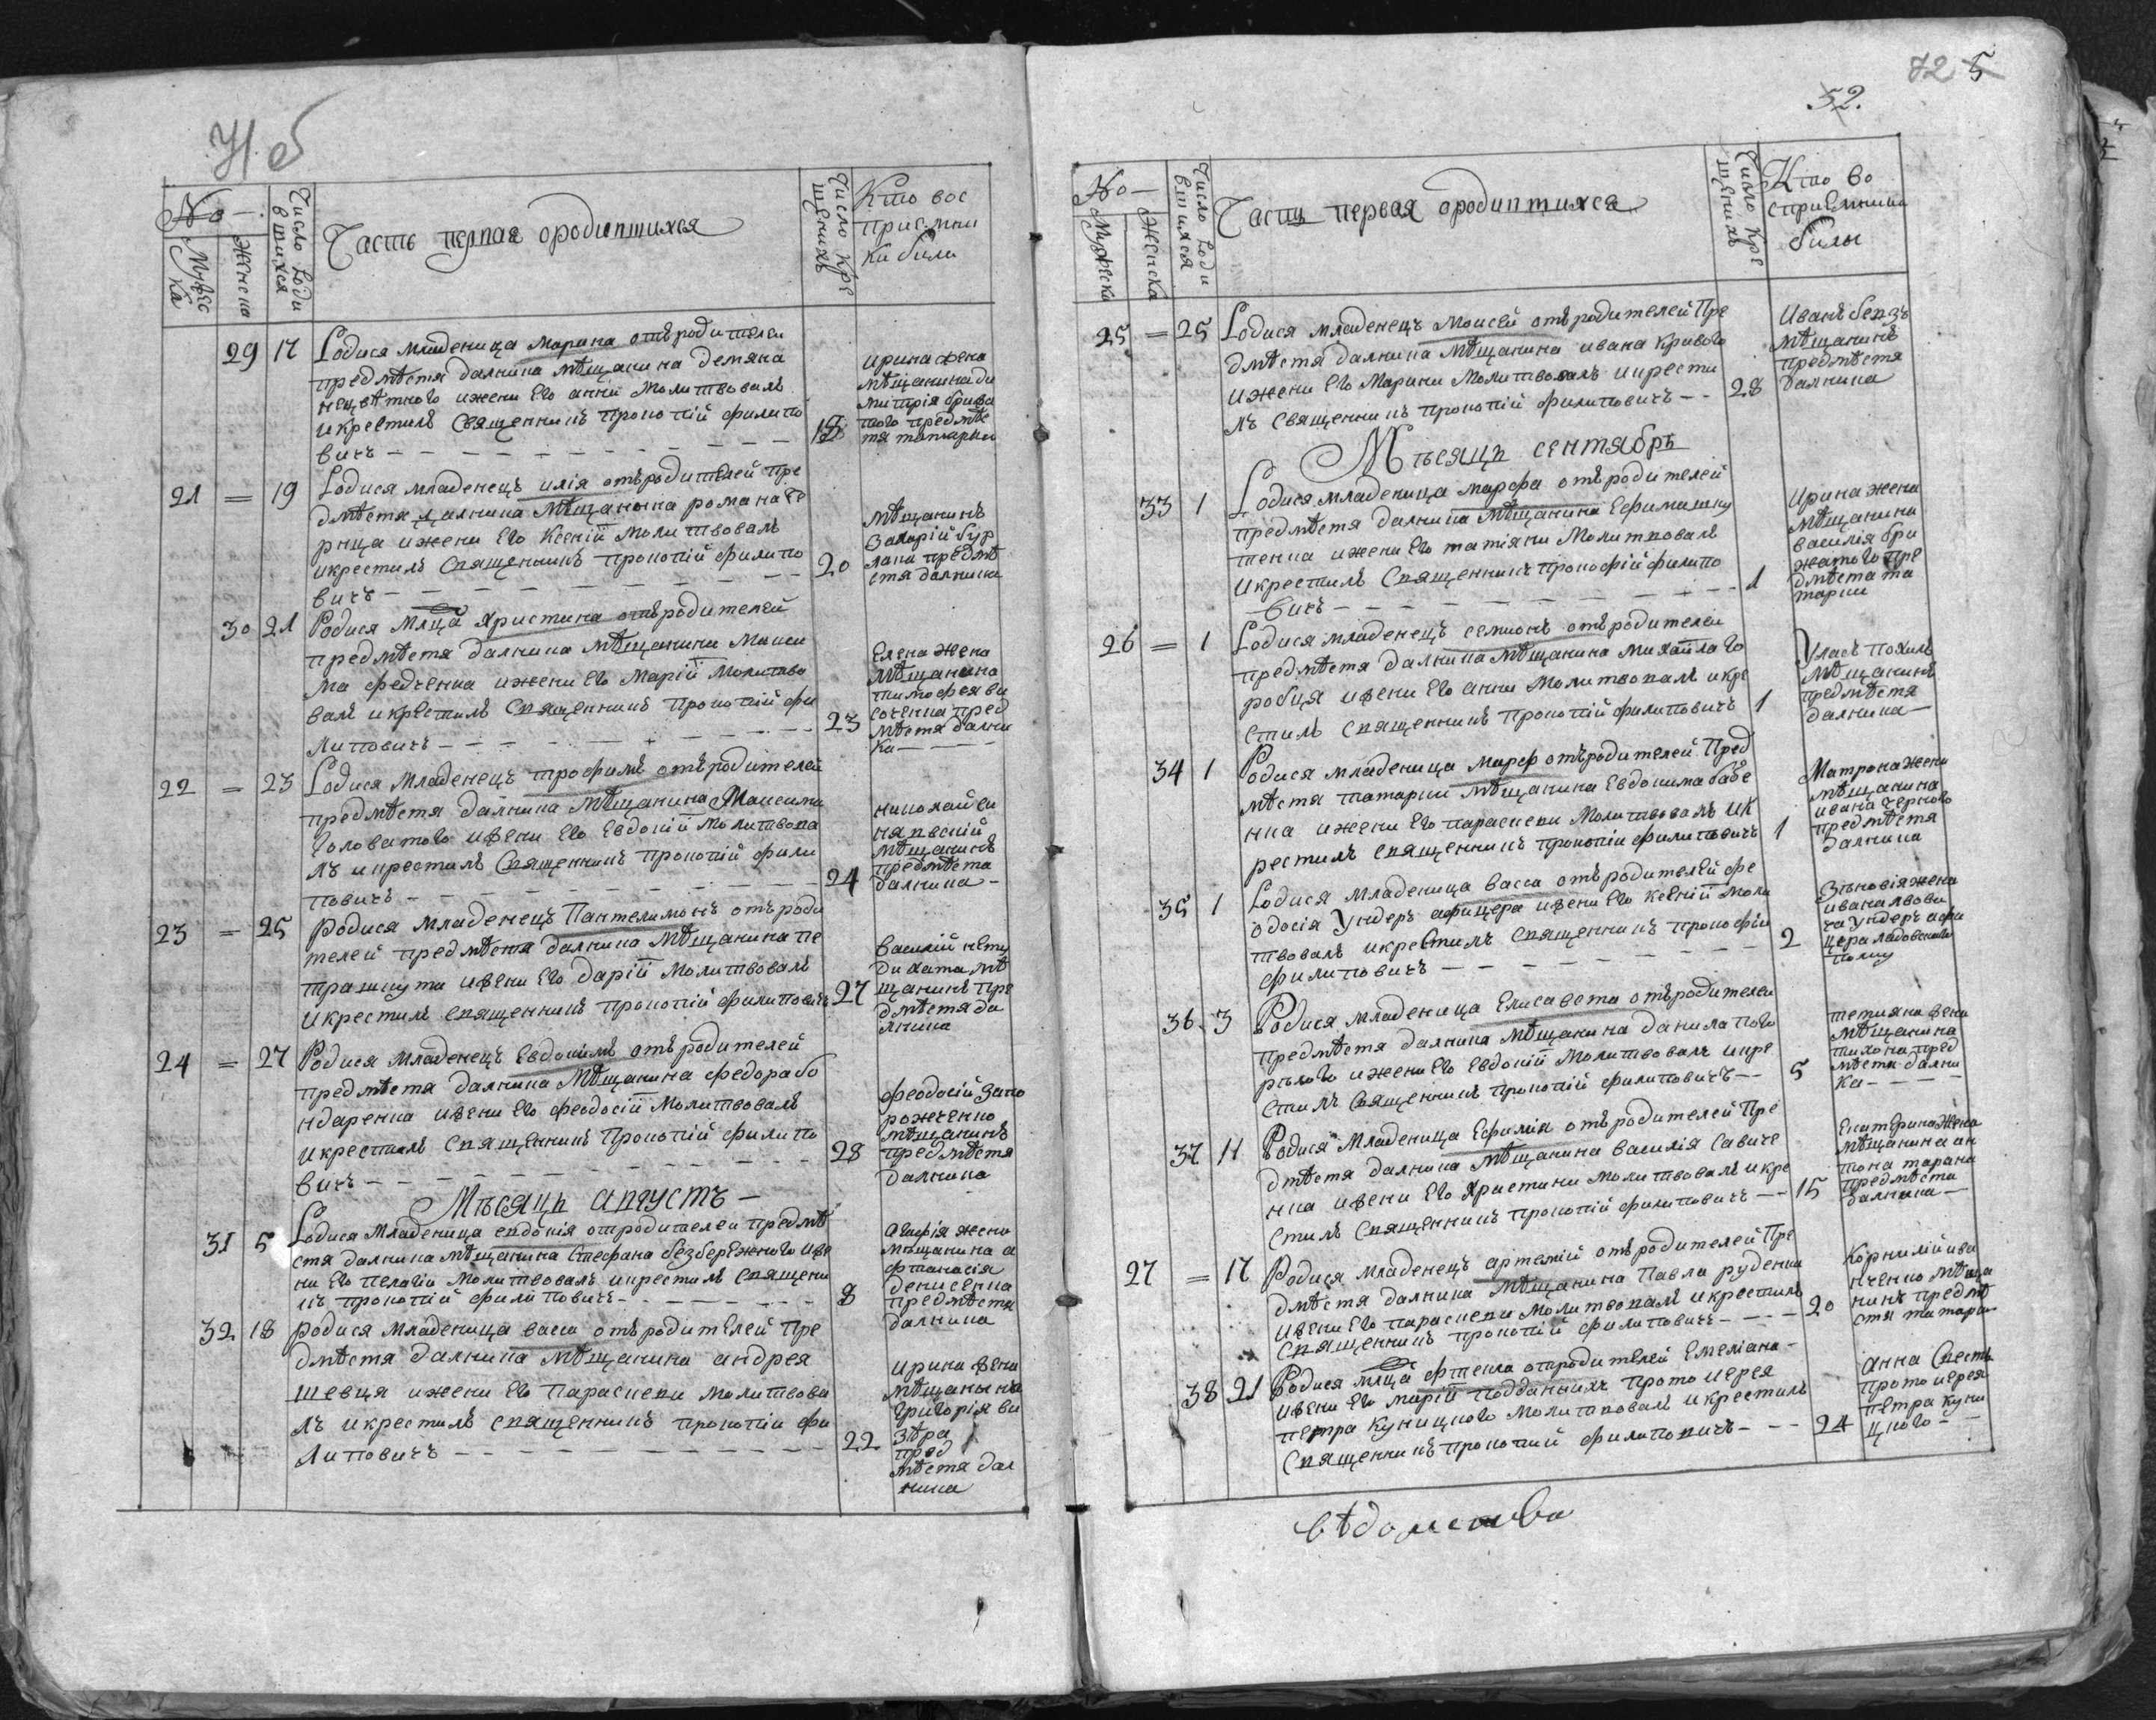 №
Мужес
ка
Женска
Число Роди
вшихся
Часть первая ородившихся
Число Кре
щенихъ
Кто вос
приемни
ки были
29 17 Родися младеница Марина отъ родителей
предмѣстя далника мѣщанина демяна
нецвѣтного ижени Его анни Молитвовалъ
икрестилъ Священникъ прокопій филипо
вичъ 18
ирина жена
мѣщанина ди
митрія
того предмѣс
тя татарки
21 = 19 Родися младенецъ илія отъ родителей пре
дмѣстя далника Мѣщанина романа Че
рнца ижени Его Ксеній Молитвовалъ
икрестилъ Священникъ прокопій филипо
вичъ 20
мѣщанинъ
Захарій бур
лака предмѣ
стя далника
30 21 Родися Млца Христина отъ родителей
предмѣстя далника мѣщанина Макси
ма федченка ижени Его Марій Молитво
валъ икрестилъ Священникъ прокопій фи
липовичъ 23
Елена жена
мѣщанина
тимофея ви
соченка пред
мѣстя дални
ка
22 = 23 Родися Младенецъ трофимъ отъ родителей
предмѣстя далника Мѣщанина Максима
Головатого ижени Его Евдокій Молитвова
лъ икрестилъ Священникъ прокопій фили
повичъ 24
николай си
нявский
мѣщанинъ
предмѣстя
далника
23 = 25 Родися Младенецъ Пантелимонъ отъ роди
телей предмѣстя далника Мѣщанина пе
тра ижени Его дарій Молитвовалъ
икрестилъ священникъ прокопій филиповичъ 27
василій нету
дихата мѣ
щанинъ пре
дмѣстя да
лника
24 = 27 Родися Младенецъ Евдокимъ отъ родителей
предмѣстя далника Мѣщанина федора бо
ндаренка ижени Его феодосій Молитвовалъ
икрестилъ Священникъ прокопій филипо
вичъ 28
феодосій запо
роженко
мѣщанинъ
предмѣстя
далника
Мѣсяцъ августъ
31 5 Родися Младеница евдокія отродителей предмѣ
стя далника мѣщанина Стефана безбережного иже
ни Его пелагіи Молитвовалъ икрестилъ священи
къ прокопій филиповичъ 8
Агафія жена
мѣщанина а
фтанасія
денисенка
предмѣстя
далника
32 18 Родися Младеница васса отъ родителей пре
дмѣстя далника Мѣщанина андрея
шевця ижени Его Параскеви молитвова
лъ икрестилъ священникъ прокопій фи
липовичъ 22
ирина жена
мѣщанина
григорія ви
зѣра
пред
мѣстя дал
ника
72 5
52.
№
Мужеска
Женска
Число Роди
вшихся
Часть первая ородившихся
Число Кре
щенихъ
Кто во
сприемники
были
25 = 25 Родися младенецъ Моисей отъ родителей Пре
дмѣстя далника Мѣщанина ивана Кривого
ижени Его Марини Молитвовалъ икрести
лъ Священникъ прокопій филиповичъ 28
Иванъ
мѣщанинъ
предмѣстя
далника
Мѣсяцъ сентябрь
33 1 Родися младеница марфа отъ родителей
предмѣстя далника Мѣщанина Ефима шку
тенка ижени Его татіяни Молитвовалъ
икрестилъ Священникъ прокофій филипо
вичъ 1
Ирина жена
мѣщанина
василія бри
жатого пре
дмѣста та
тарки
26 = 1 Родися младенецъ семионъ отъ родителей
предмѣстя далника мѣщанина михайла го
робця ижени Его анни Молитвовалъ икре
стилъ священникъ прокопій филиповичъ 1
Уласъ похилъ
мѣщанинъ
предмѣстя
далника
34 1 Родися младеница марф отъ родителей Пред
мѣстя татарки мѣщанина Евдокима бабе
нка ижени Его параскеви Молитвовалъ ик
рестилъ священникъ прокопій филиповичъ 1
Матрона жена
мѣщанина
ивана черного
предмѣстя
далника
35 1 Родися Младеница васса отъ родителей фе
одосія Ундеръ афицера ижени Его ксеній Моли
твовалъ икрестилъ священникъ прокофій
филиповичъ 2
Зѣновія жена
ивана лвови
ча ундеръ афи
цера
полку
36 3 Родися младеница Елисавета отъ родителей
предмѣстя далника Мѣщанина данила пого
рѣлого ижени Его Евдокій Молитвовалъ икре
стилъ Священникъ прокопій филиповичъ 5
тетияна жена
мѣщанина
тихона пред
мѣстя дални
ка
37 11 Родися Младеница Ефимія отъ родителей Пре
дмѣстя далника Мѣщанина василія савиче
нка ижени Его Христини Молитвовалъ икре
стилъ священникъ прокопій филиповичъ 15
Екатерина жена
мѣщанина ан
тона тарана
предмѣстя
далника
27 = 17 Родися младенецъ артемій отъ родителей Пре
дмѣстя далника Мѣщанина Павла руденка
ижени Его параскеви Молитвовалъ икрестилъ
священникъ прокопій филиповичъ 20
Корнилий ива
нченко мѣща
нинъ предмѣ
стя татарки
38 21 Родися млца фтекла отродителей Емеліана
ижени Его марій подданнихъ протоиерея
петра Куницкого Молитвовалъ икрестилъ
священникъ прокопій филиповичъ 24
Анна
протоиерея
петра куни
цкого
вѣдомства